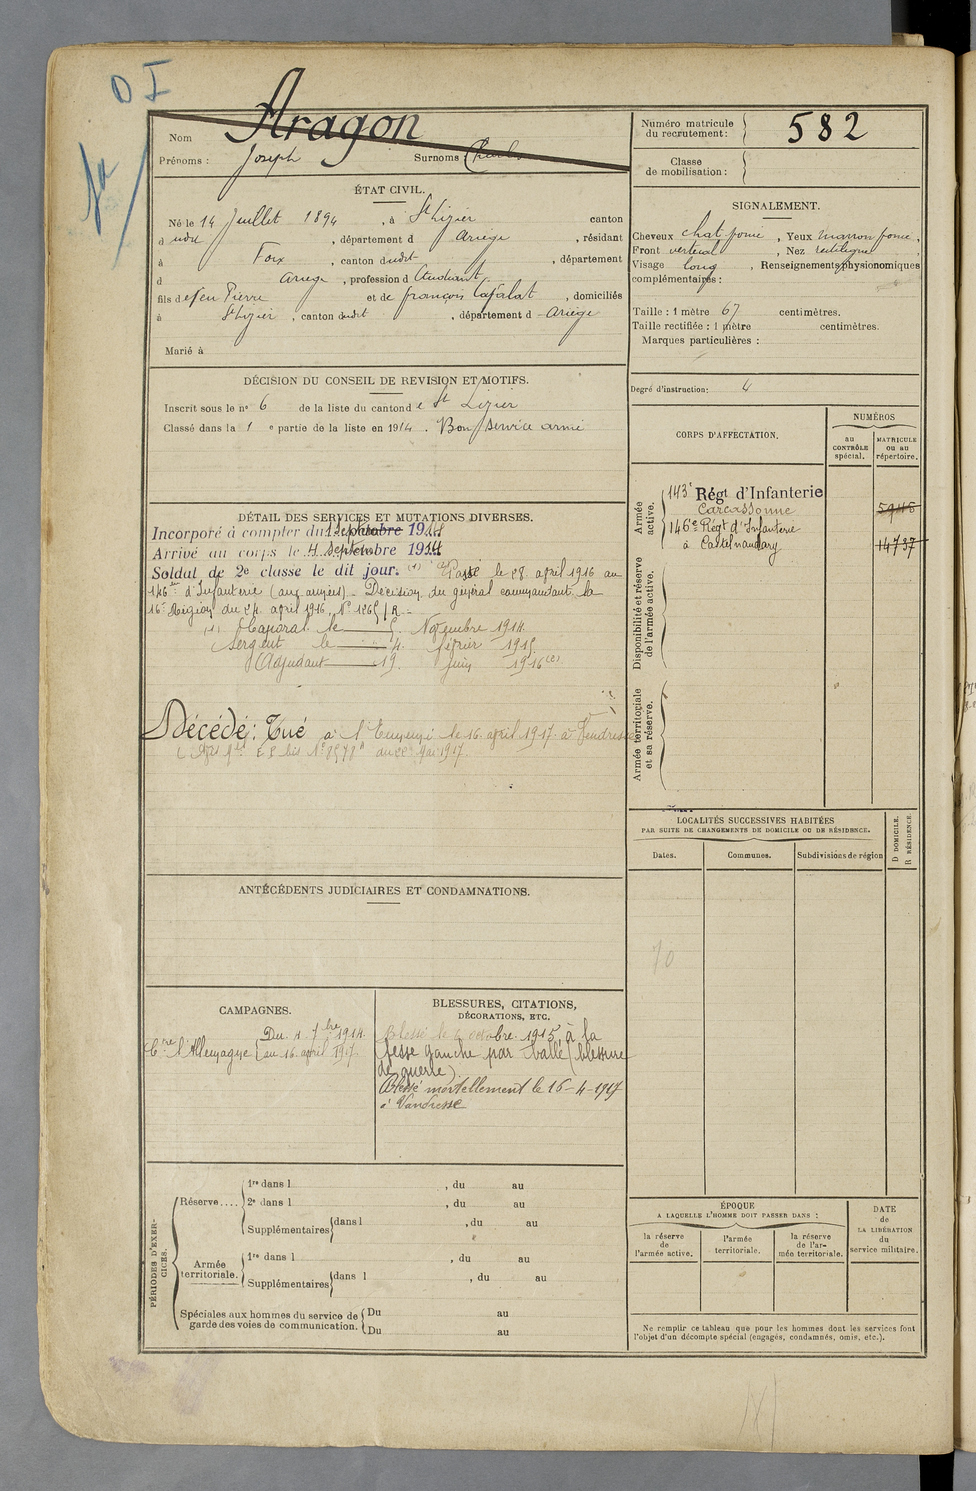 O I
Nom Aragon
Prénoms : Joseph Surnoms : Charles
Numéro matricule du recrutement : 582
Classe de mobilisation :
ÉTAT CIVIL.
Né le 14 Juillet 1894, à St Lizier canton
d udit, département d Ariège, résidant
à Foix, canton dudit, département
d Ariège, profession d'étudiant
fils de feu Pierre et de François Cafalat, domiciliés
à St Lizier, canton dudit, département d Ariège
Marié à
SIGNALEMENT.
Cheveux chat. foncé, Yeux marron foncé,
Front vertical, Nez rectiligne,
Visage long, Renseignements physionomiques
complémentaires :
Taille : 1 mètre 67 centimètres.
Taille rectifiée : 1 mètre centimètres.
Marques particulières :
DÉCISION DU CONSEIL DE REVISION ET MOTIFS.
Inscrit sous le no 6 de la liste du canton de St Lizier
Classé dans la 1 e partie de la liste en 1914. Bon service armé
Degré d'instruction: 4
CORPS D'AFFECTATION.
NUMÉROS
au CONTRÔLE spécial.
MATRICULE OU AU répertoire.
Armée active.
143e Régt d'Infanterie
Carcassonne 5946
146e Régt d'Infanterie
à Castelnaudary 14737
Disponibilité et réserve de l'armée active.
Armée territoriale et sa réserve.
DÉTAIL DES SERVICES ET MUTATIONS DIVERSES.
Incorporé à compter du 1 Septembre 1914
Arrivé au corps le 4 Septembre 1914
Soldat de 2e classe le dit jour. (1) Passé le 28 avril 1916 au
146e d'Infanterie (aux armées). Décision du général commandant la
16e Région du 24 avril 1916, No 1265/R.
(1) Caporal le 5 Novembre 1914
Sergent le 4 février 1915
Adjudant 19 Juin 1916
Décédé: Tué à l'Ennemi le 16 avril 1917 à Vendresse
du 22 Mai 1917.
LOCALITÉS SUCCESSIVES HABITÉES
PAR SUITE DE CHANGEMENTS DE DOMICILE OU DE RÉSIDENCE.
Dates.
Communes.
Subdivisions de région
D DOMICILE.
R RÉSIDENCE.
ANTÉCÉDENTS JUDICIAIRES ET CONDAMNATIONS.
CAMPAGNES.
Du 4 7bre 1914
Ctre l'Allemagne au 16 avril 1917.
BLESSURES, CITATIONS,
DÉCORATIONS, ETC.
Blessé le 6 octobre 1915 à la
fesse gauche par balle (blessure
de guerre).
Blessé mortellement le 16-4-1917
à Vendresse
PÉRIODES D'EXERCICES.
Réserve....
1re dans l , du au
2e dans l , du au
Supplémentaires dans l , du au
Armée territoriale.
1re dans l , du au
Supplémentaires dans l , du au
Spéciales aux hommes du service de
garde des voies de communication.
Du au
Du au
ÉPOQUE
A LAQUELLE L'HOMME DOIT PASSER DANS :
la réserve de l'armée active.
l'armée territoriale.
la réserve de l'armée territoriale.
DATE de LA LIBÉRATION du service militaire.
Ne remplir ce tableau que pour les hommes dont les services font
l'objet d'un décompte spécial (engagés, condamnés, omis, etc.).